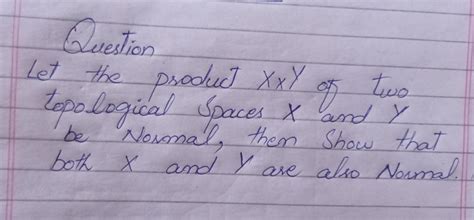 Question
Let the product XxY of two
topological spaces X and Y
be Normal, then Show that
both X and Y are also Normal.